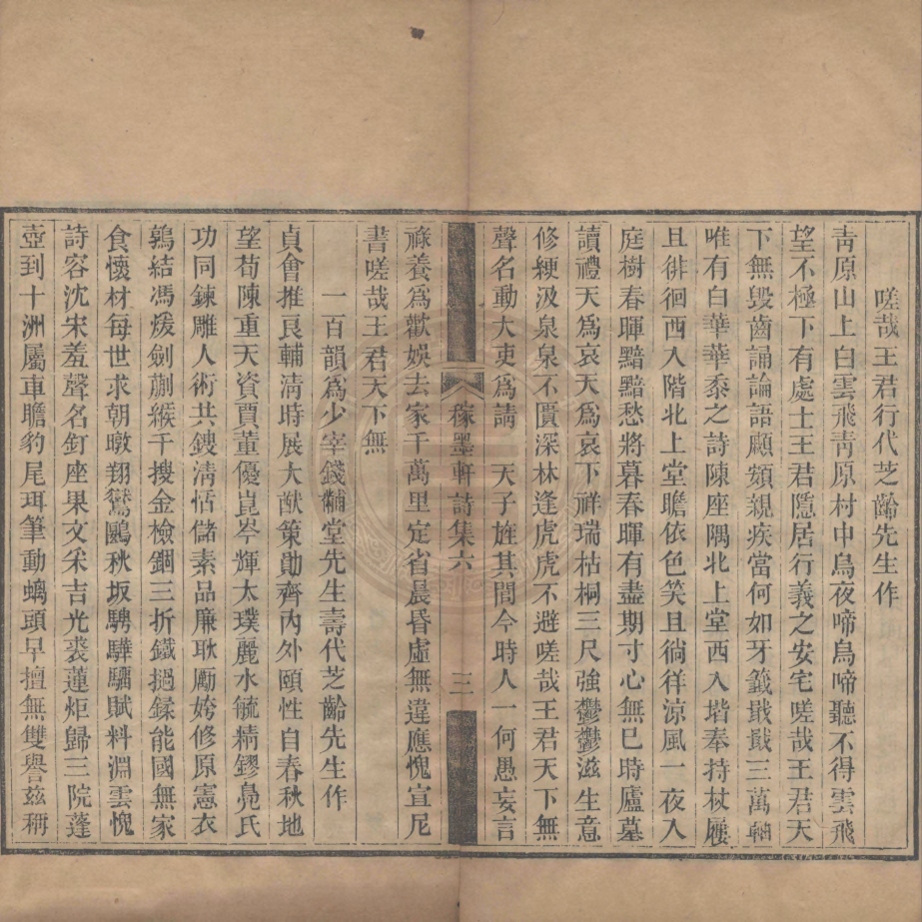 嗟哉王君行代芝齡先生作
靑原山上白雲飛靑原村中烏夜啼烏啼聽不得雲飛
望不極下有處士王君隱居行義之安宅嗟哉王君天
下無毀齒誦論語顑頷親疾當何如牙籤戢戢三萬軸
唯有白華華黍之詩陳座隅北上堂西入堦奉持杖屨
且徘徊西入階北上堂瞻依色笑且徜徉涼風一夜入
庭樹春暉黯黯愁將暮春暉有盡期寸心無已時廬墓
讀禮天爲哀天爲哀下祥瑞枯桐三尺強鬱鬱滋生意
修綆汲泉泉不匱深林逢虎虎不避嗟哉王君天下無
聲名動大吏爲請 天子旌其閭今時人一何愚妄言
稼墨軒詩集六 三
祿養爲歡娛去家千萬里定省晨昏虛無違應愧宣尼
書嗟哉王君天下無
一百韻爲少宰錢黼堂先生壽代芝齡先生作
貞會推良輔淸時展大猷策勛齊內外頤性自春秋地
望荀陳重天資賈董優崑岑輝太璞麗水毓精鏐鳧氏
功同鍊雕人術共鎪淸恬儲素品廉耿勵姱修原憲衣
鶉結馮煖劍蒯緱千搜金檢錮三折鐵撾鍒能國無家
食懷材每世求朝暾翔鸞鷗秋坂騁驊騮賦料淵雲愧
詩容沈宋羞聲名釘座果文釆吉光裘蓮炬歸三院蓬
壺到十洲屬車瞻豹尾珥筆動螭頭早擅無雙譽兹稱